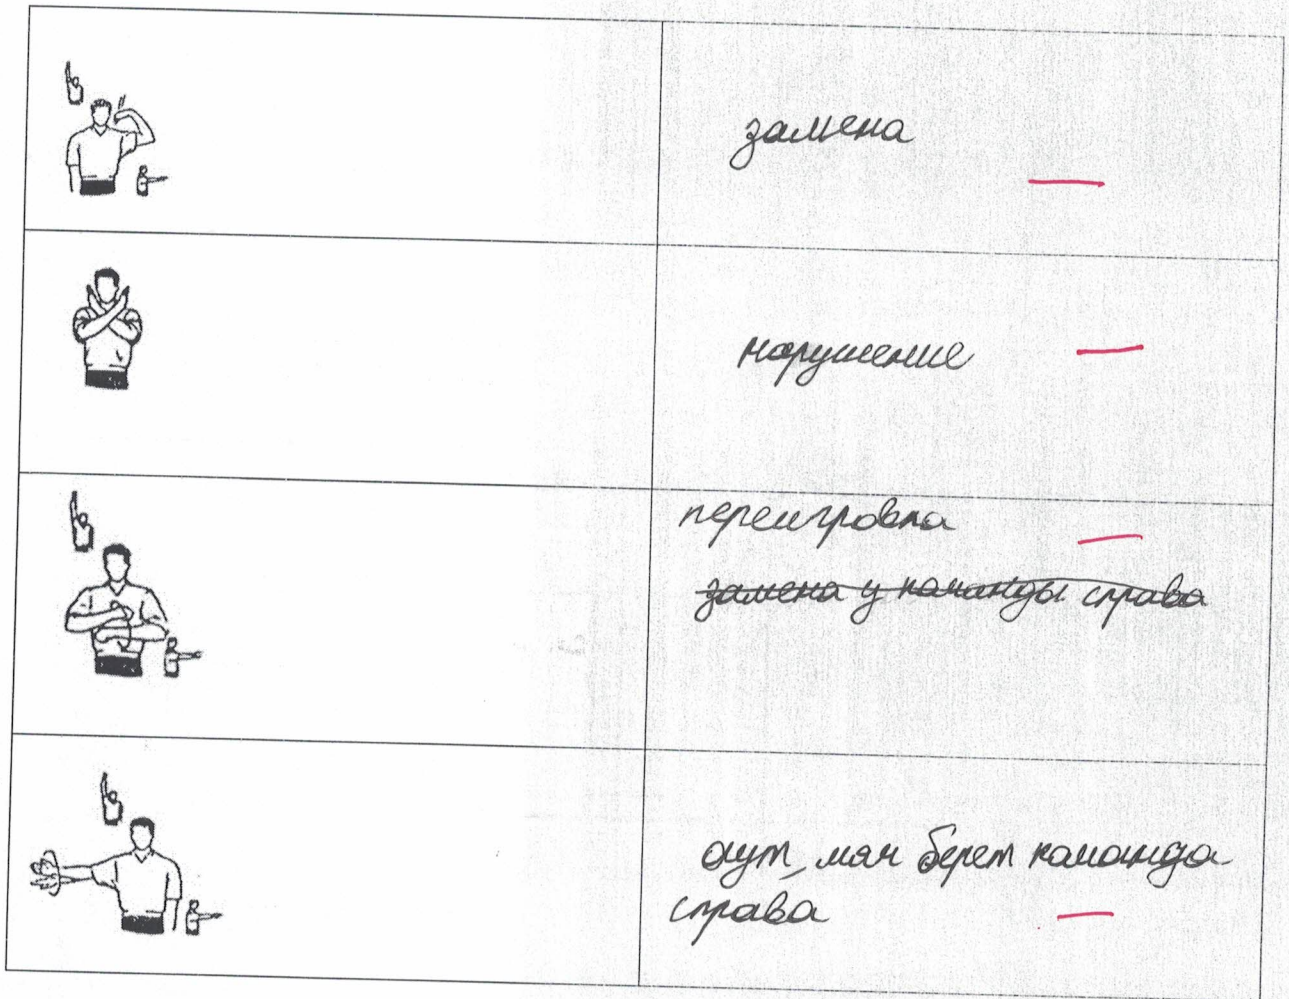 замена
нарушение
переигровка
замена у команды справа
аут, мяч берет команда
справа